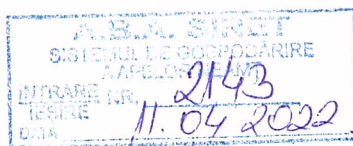 A.B.A. SIRET
SISTEMUL DE GOSPODĂRIRE
A APELOR NEAMȚ
INTRARE NR. 2143
IESIRE
DATA 11.04.2022